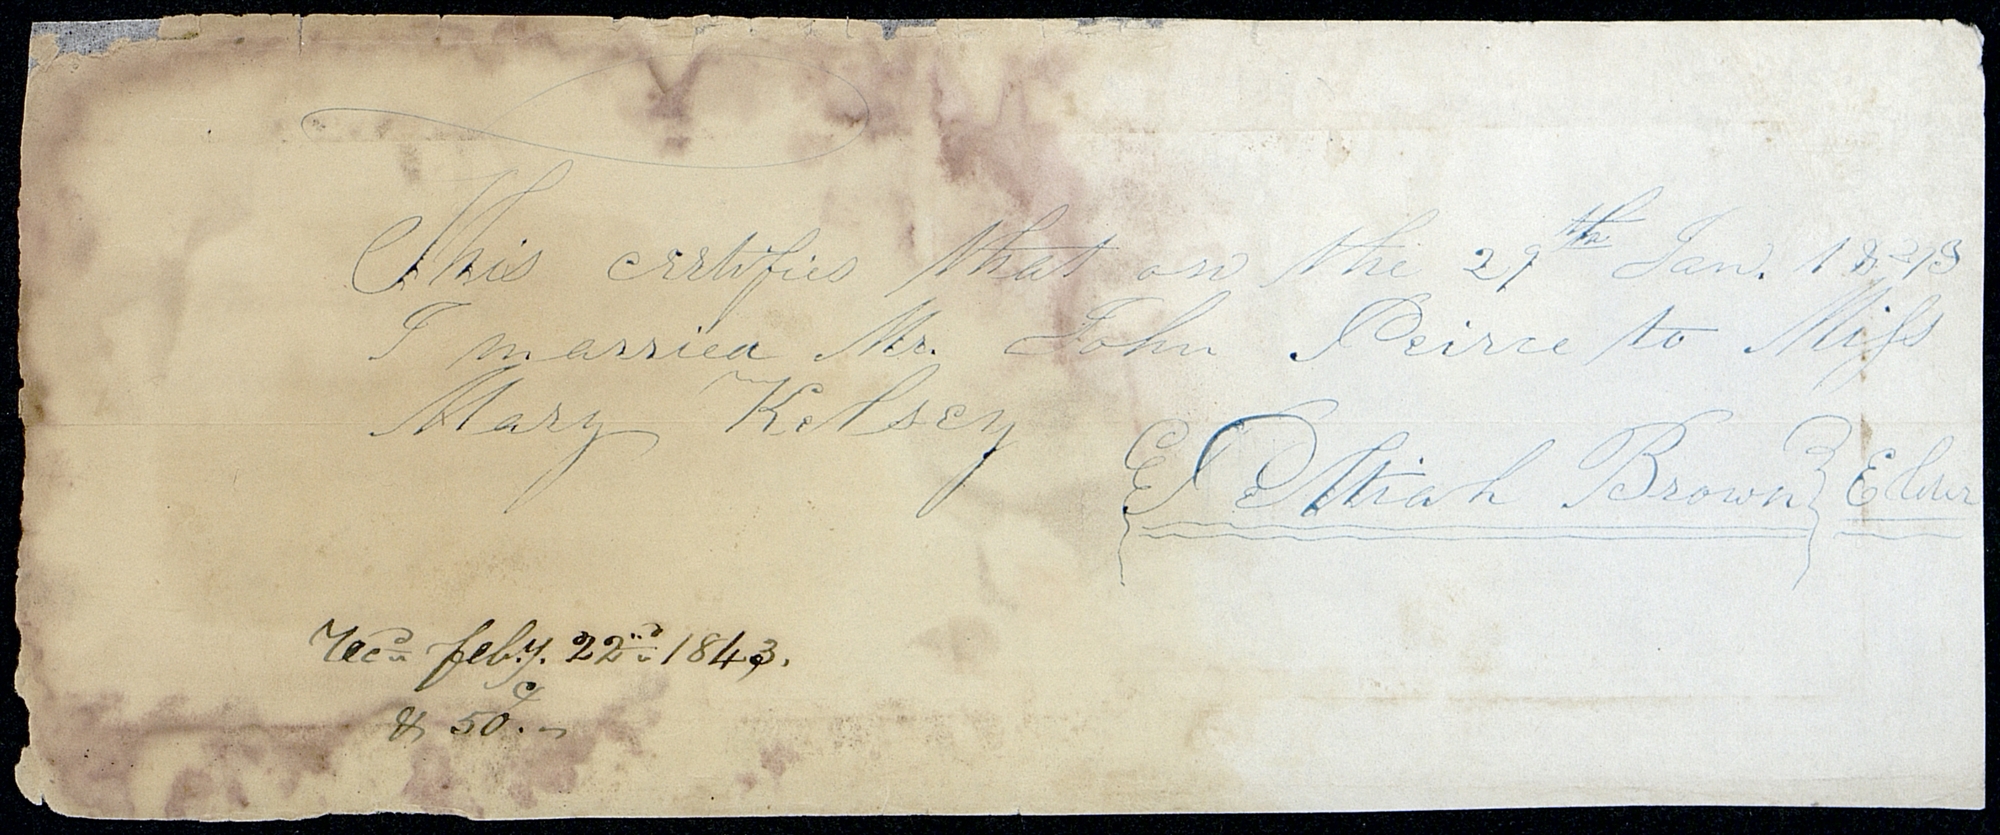 This certifies that on the 29th Jan. 1843
I married Mr. John Peirce to Miss
Mary Kelsey
Pelatiah Brown } Elder
Recd. feby. 22nd. 1843.
& 50c.